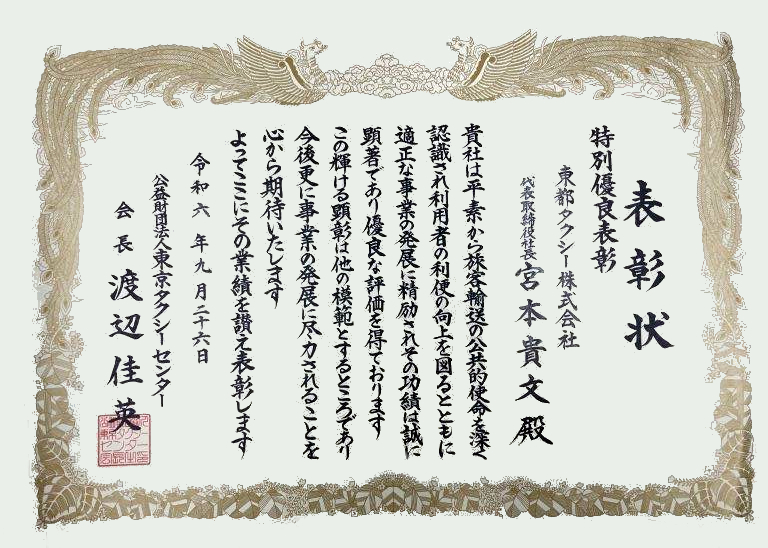 表彰状
特別優良表彰
東都タクシー株式会社
代表取締役社長 宮本貴文 殿
貴社は平素から旅客輸送の公共的使命を深く
認識され利用者の利便の向上を図るとともに
適正な事業の発展に精励されその功績は誠に
顕著であり優良な評価を得ております
この輝ける顕彰は他の模範とするところであり
今後更に事業の発展に尽力されることを
心から期待いたします
よってここにその業績を讃え表彰します
令和六年九月二十六日
公益財団法人東京タクシーセンター
会長 渡辺佳英